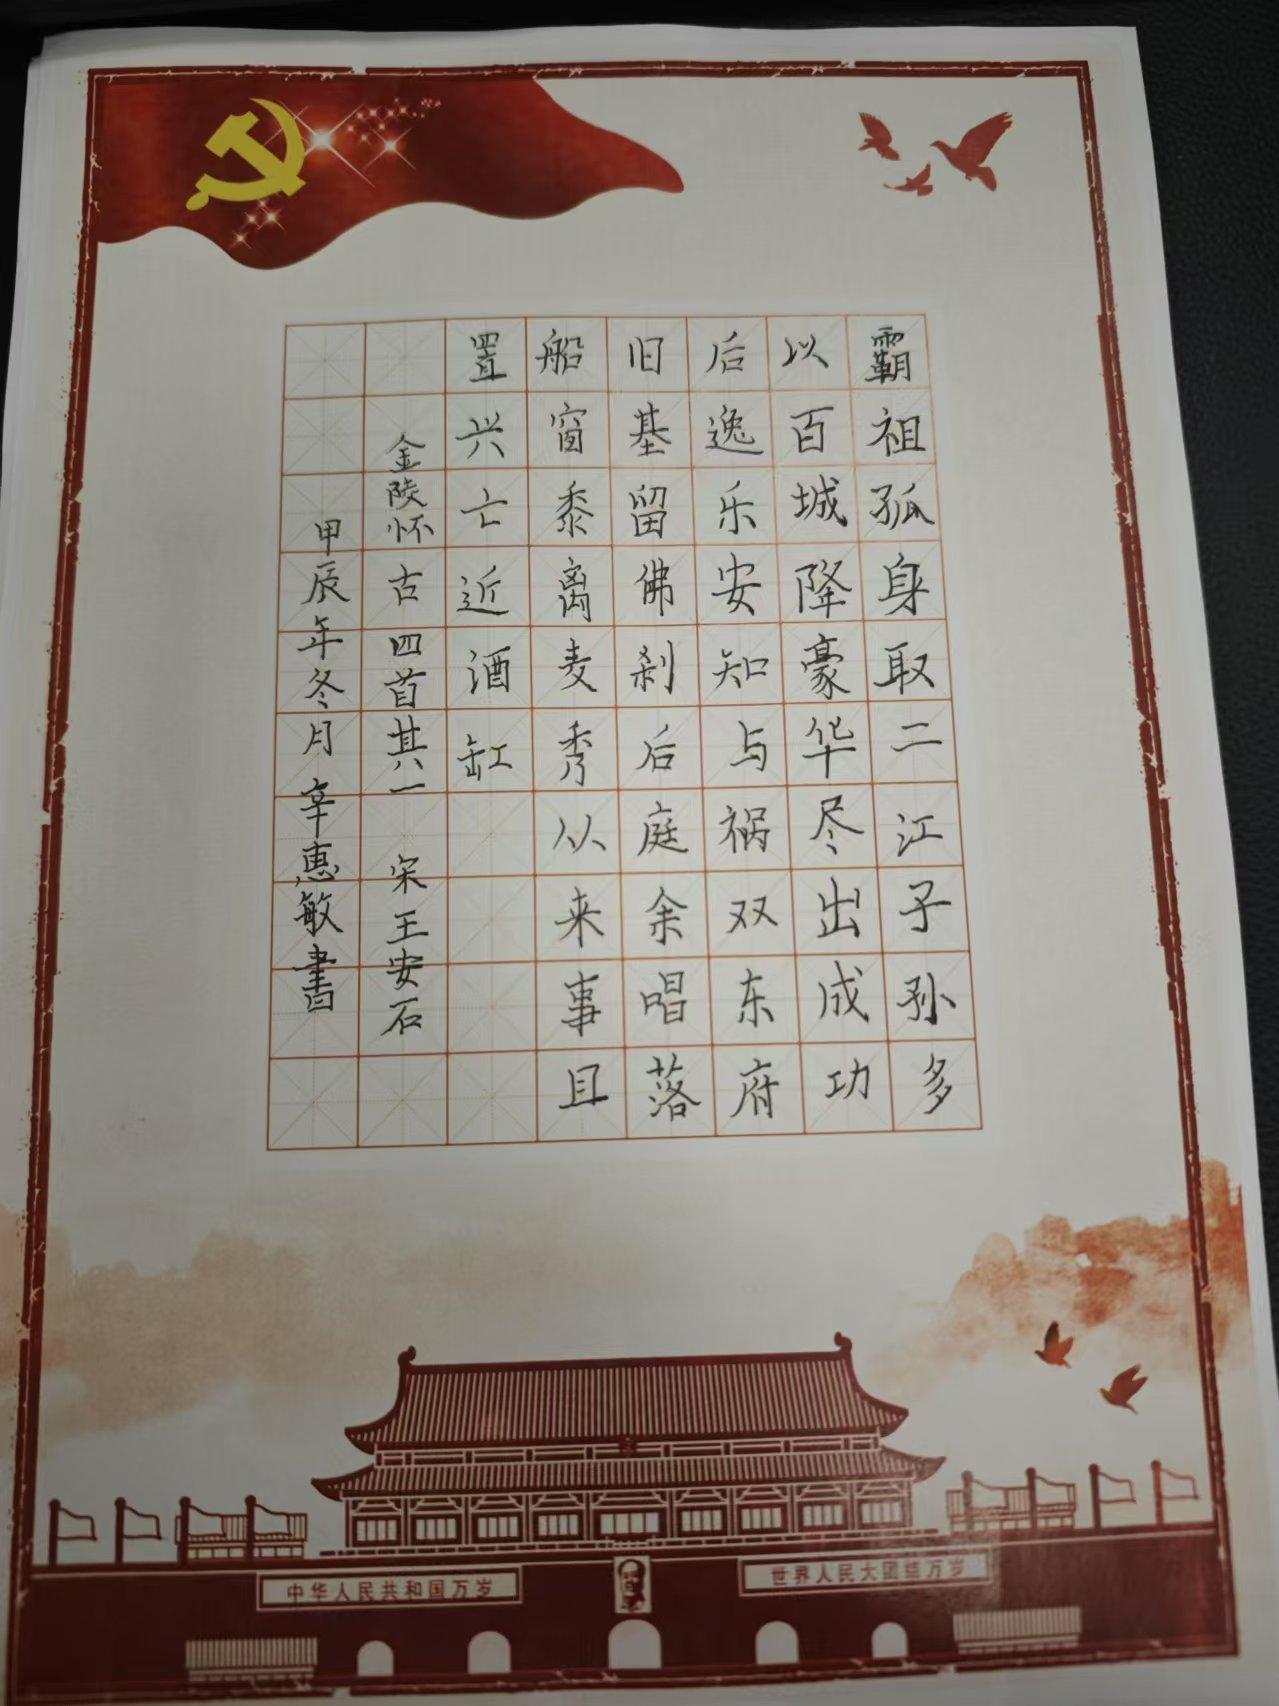 霸祖孤身取二江子孙多
以百城降豪华尽出成功
后逸乐安知与祸双东府
旧基留佛刹后庭余唱落
船窗黍离麦秀从来事且
置兴亡近酒缸
金陵怀古四首其一 宋王安石
甲辰年冬月辛惠敏書
中华人民共和国万岁
世界人民大团结万岁